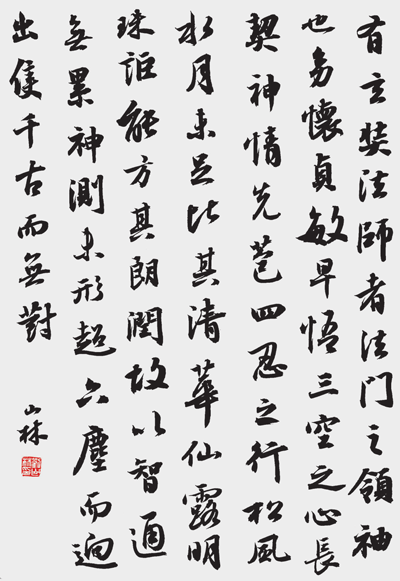 有玄奘法師者法門之領袖
也幼懷貞敏早悟三空之心長
契神情先苞四忍之行松風
水月未足比其清華仙露明
珠詎能方其朗潤故以智通
無累神測未形超六塵而迥
出隻千古而無對
山林